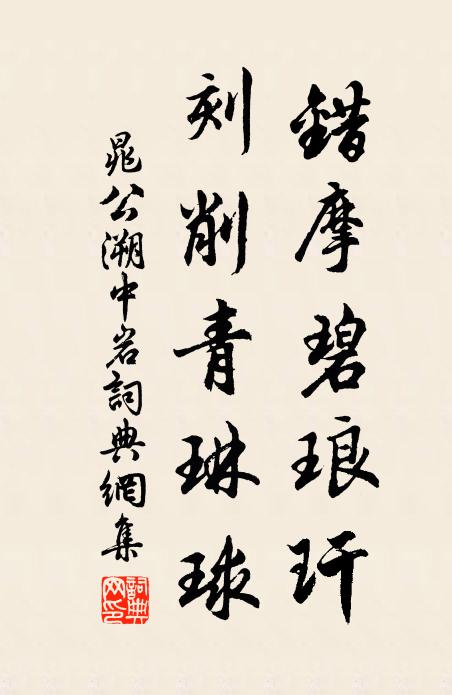 錯摩碧琅玕
刻削青琳球
晁公溯中岩詞典網集
詞典网印